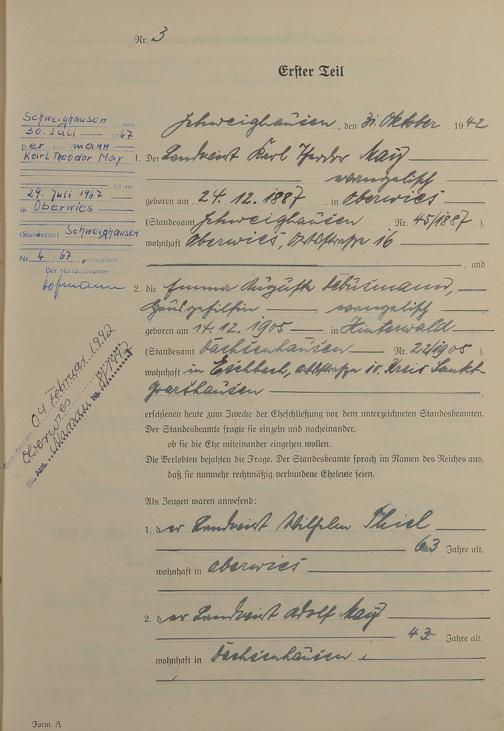 Nr. 3
Erster Teil
Schweighausen, den 31. Oktober 1942
1. Der Landwirt Karl Theodor May
evangelisch
geboren am 24.12.1887 in Oberwies
(Standesamt Schweighausen Nr. 45/1887)
wohnhaft Oberwies, Ortsstraße 16
, und
2. die Emma Auguste
evangelisch
geboren am 14.12.1905 in Hinterwald
(Standesamt Dachsenhausen Nr. 22/1905)
wohnhaft in Eschbach, Ortsstraße 10. Kreis Sankt
Goarshausen
erschienen heute zum Zwecke der Eheschließung vor dem unterzeichneten Standesbeamten.
Der Standesbeamte fragte sie einzeln und nacheinander,
ob sie die Ehe miteinander eingehen wollen.
Die Verlobten bejahten die Frage. Der Standesbeamte sprach im Namen des Reiches aus,
daß sie nunmehr rechtmäßig verbundene Eheleute seien.
Als Zeugen waren anwesend:
1. der Landwirt Wilhelm Thiel
63 Jahre alt,
wohnhaft in Oberwies
2. der Landwirt Adolf May
43 Jahre alt,
wohnhaft in Dachsenhausen.
Form. A
Schweighausen, den
30. Juli 1967
Der Mann
Karl Theodor May
ist am
29. Juli 1967
in Oberwies
(Standesamt Schweighausen
Nr. 4/67) verstorben
Der Standesbeamte
Hofmann
04. Februar 1992
Oberwies